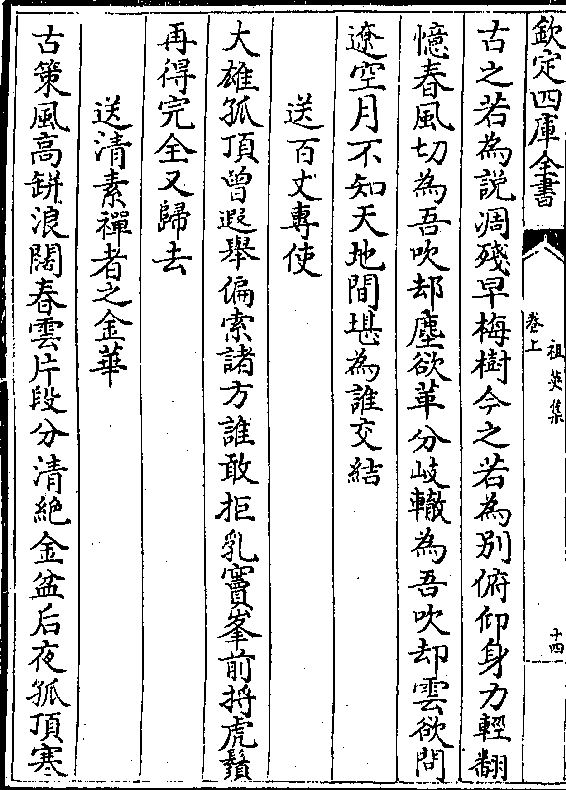 欽定四庫全書
祖英集
卷上
十四
古之若為説凋殘早梅樹今之若為別俯仰身力輕翻
憶春風切為吾吹却塵欲革分岐轍為吾吹却雲欲問
遼空月不知天地間堪為誰交結
送百丈專使
大雄孤頂曽遐舉偏索諸方誰敢拒乳竇峯前捋虎鬚
再得完全又歸去
送清素禪者之金華
古策風高缾浪闊春雲片段分清絶金盆后夜孤頂寒